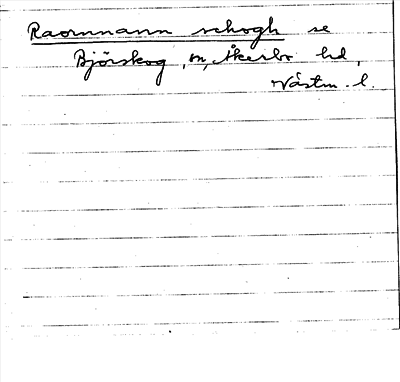 Raormnann schogh se
Björskog, sn, Åkerbo hd,
Västm. l.